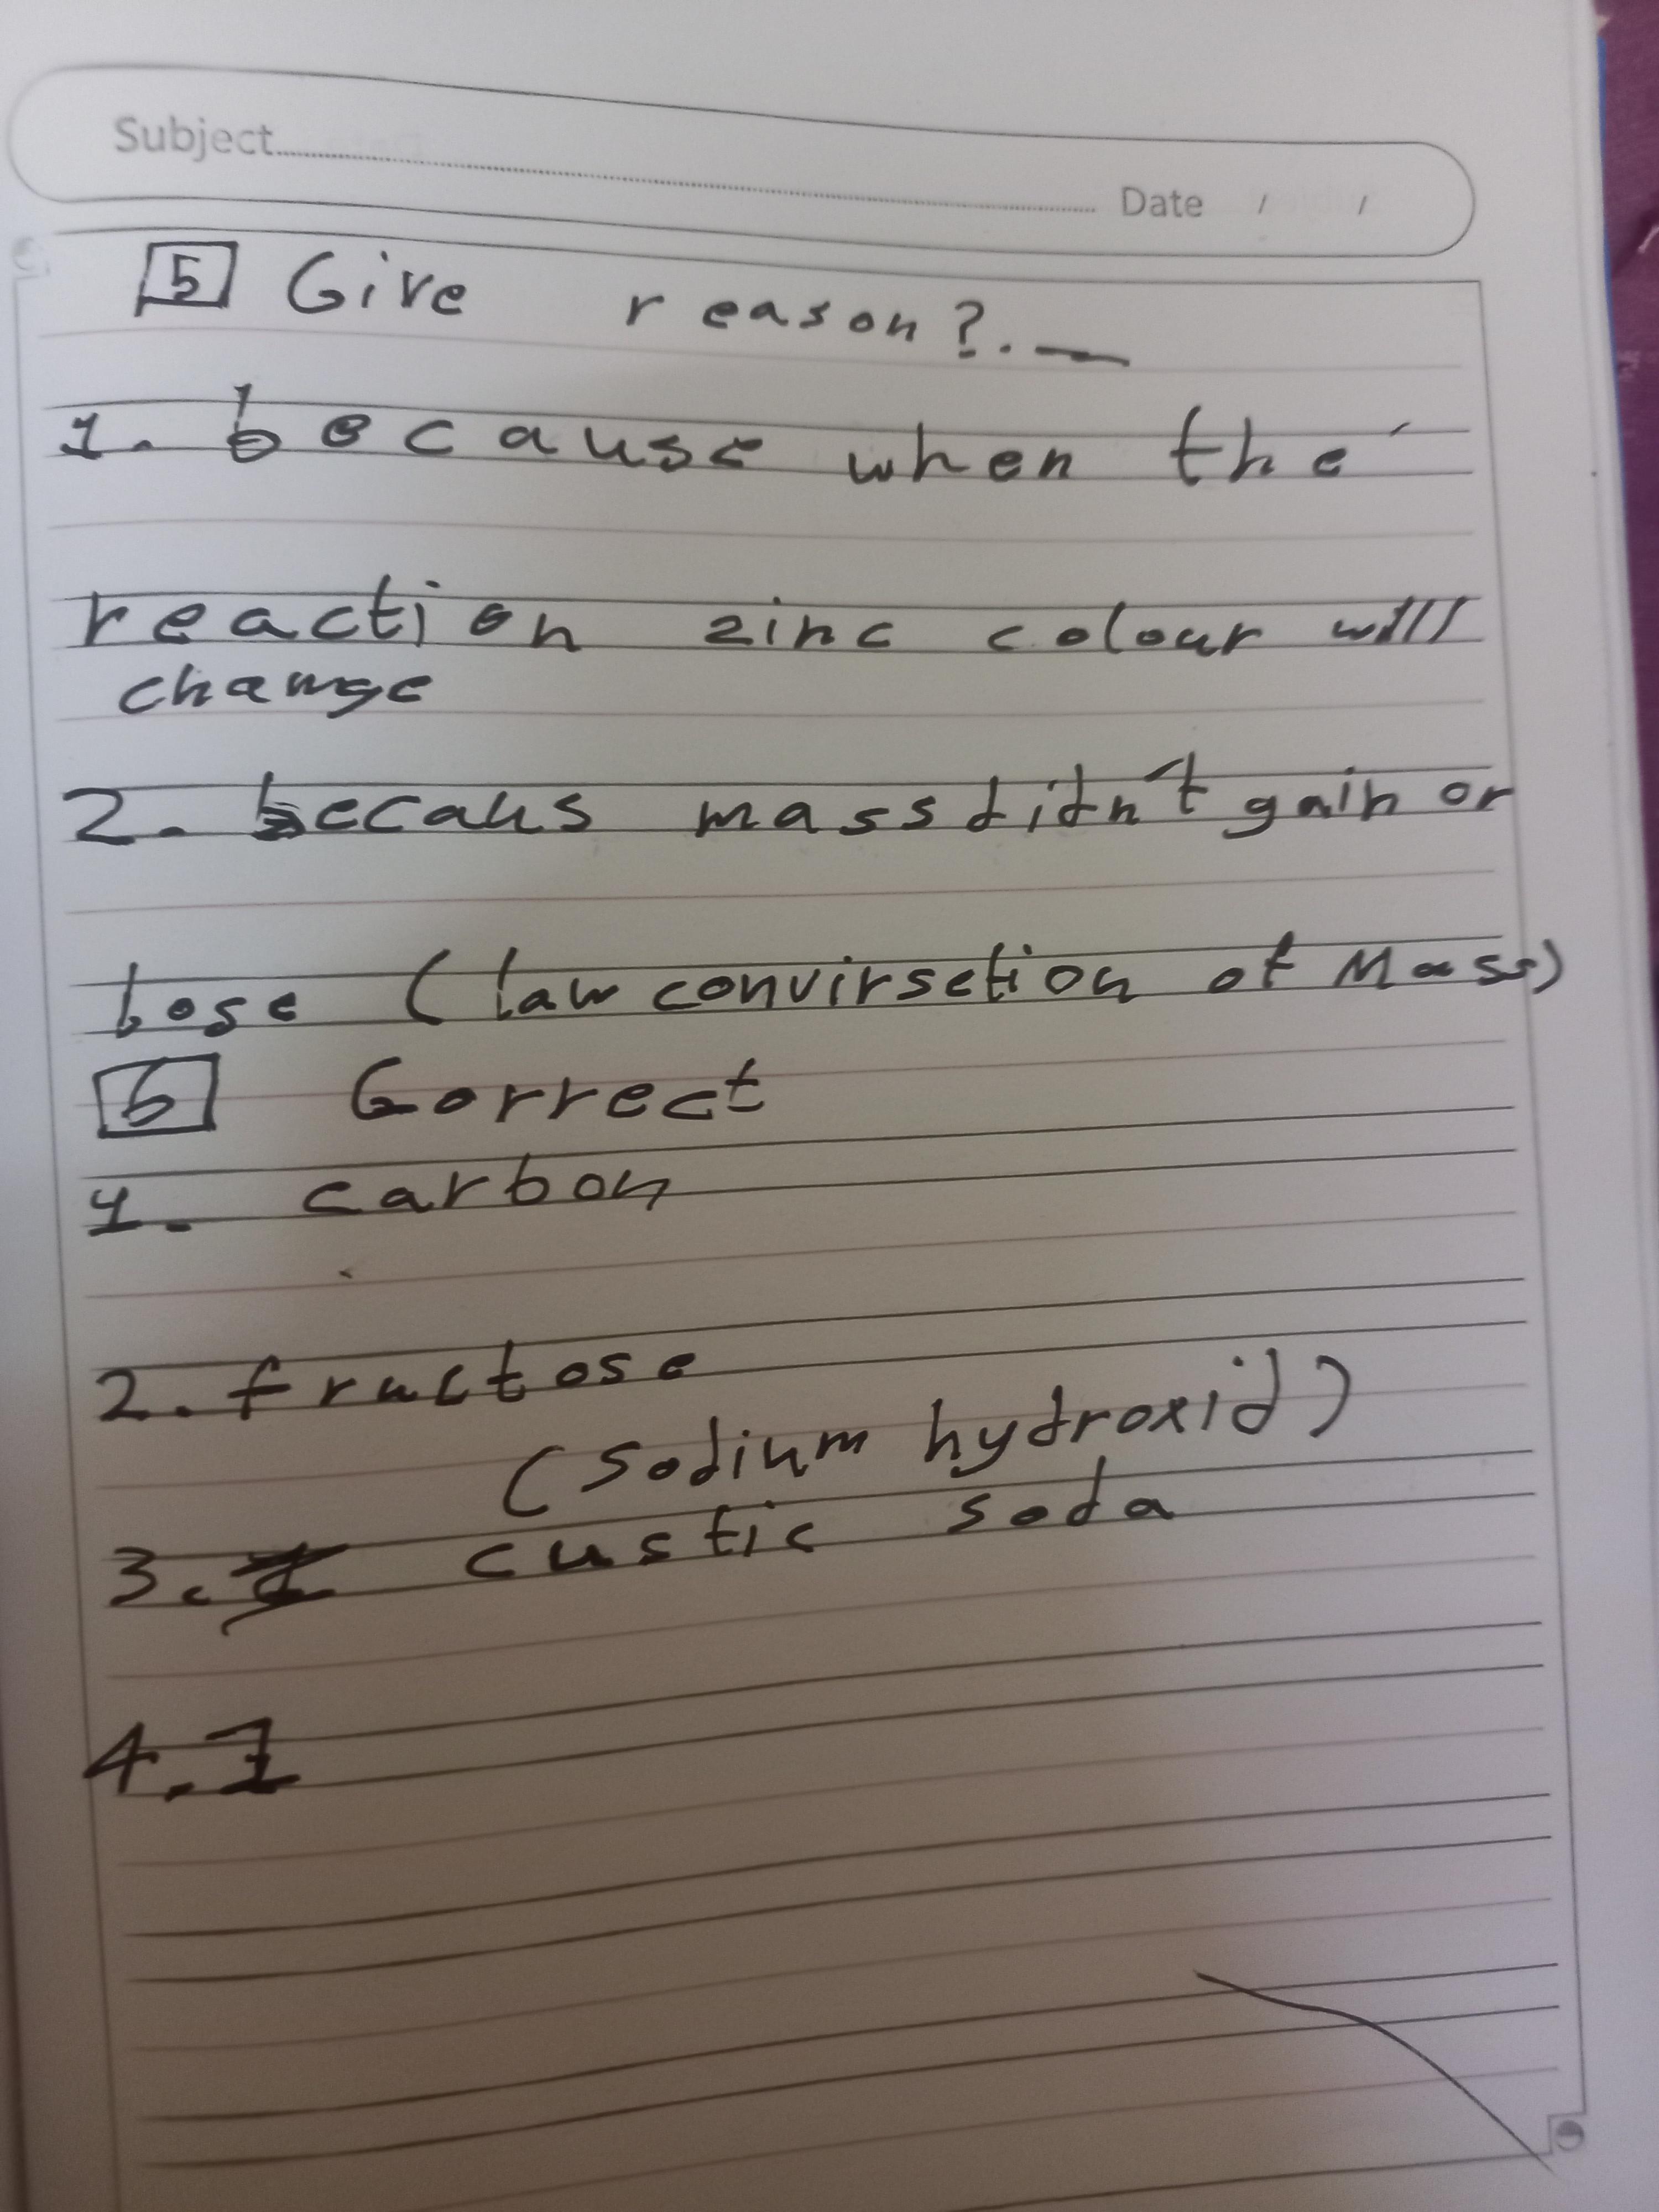 Subject
Date / /
5 Give reason?.
1. because when the
reaction zinc colour will
change
2. becaus mass didn't gain or
lose (law convirsetion of Mass)
6 Correct
1. carbon
2. fructose
(sodium hydroxid)
3. custic soda
4. 1